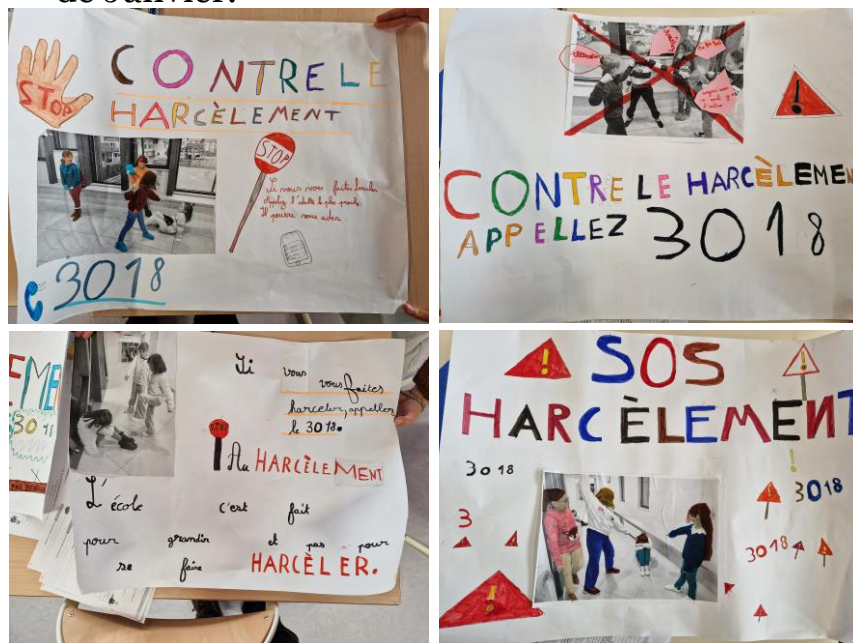 de Janvier.
STOP
CONTRE LE
HARCÈLEMENT
STOP
Si vous vous faites harceler
appelez l'adulte le plus proche.
Il pourra vous aider.
3018
CONTRE LE HARCÈLEMEN
APPELLEZ 3018
IMEN
3018
Si vous
vous faites
harceler, appeller
le 3018.
STOP
Au HARCÈLEMENT
L'école c'est fait
pour grandir et pas pour
se faire HARCÈLER.
SOS
HARCÈLEMENT
3018
3018
3
3018